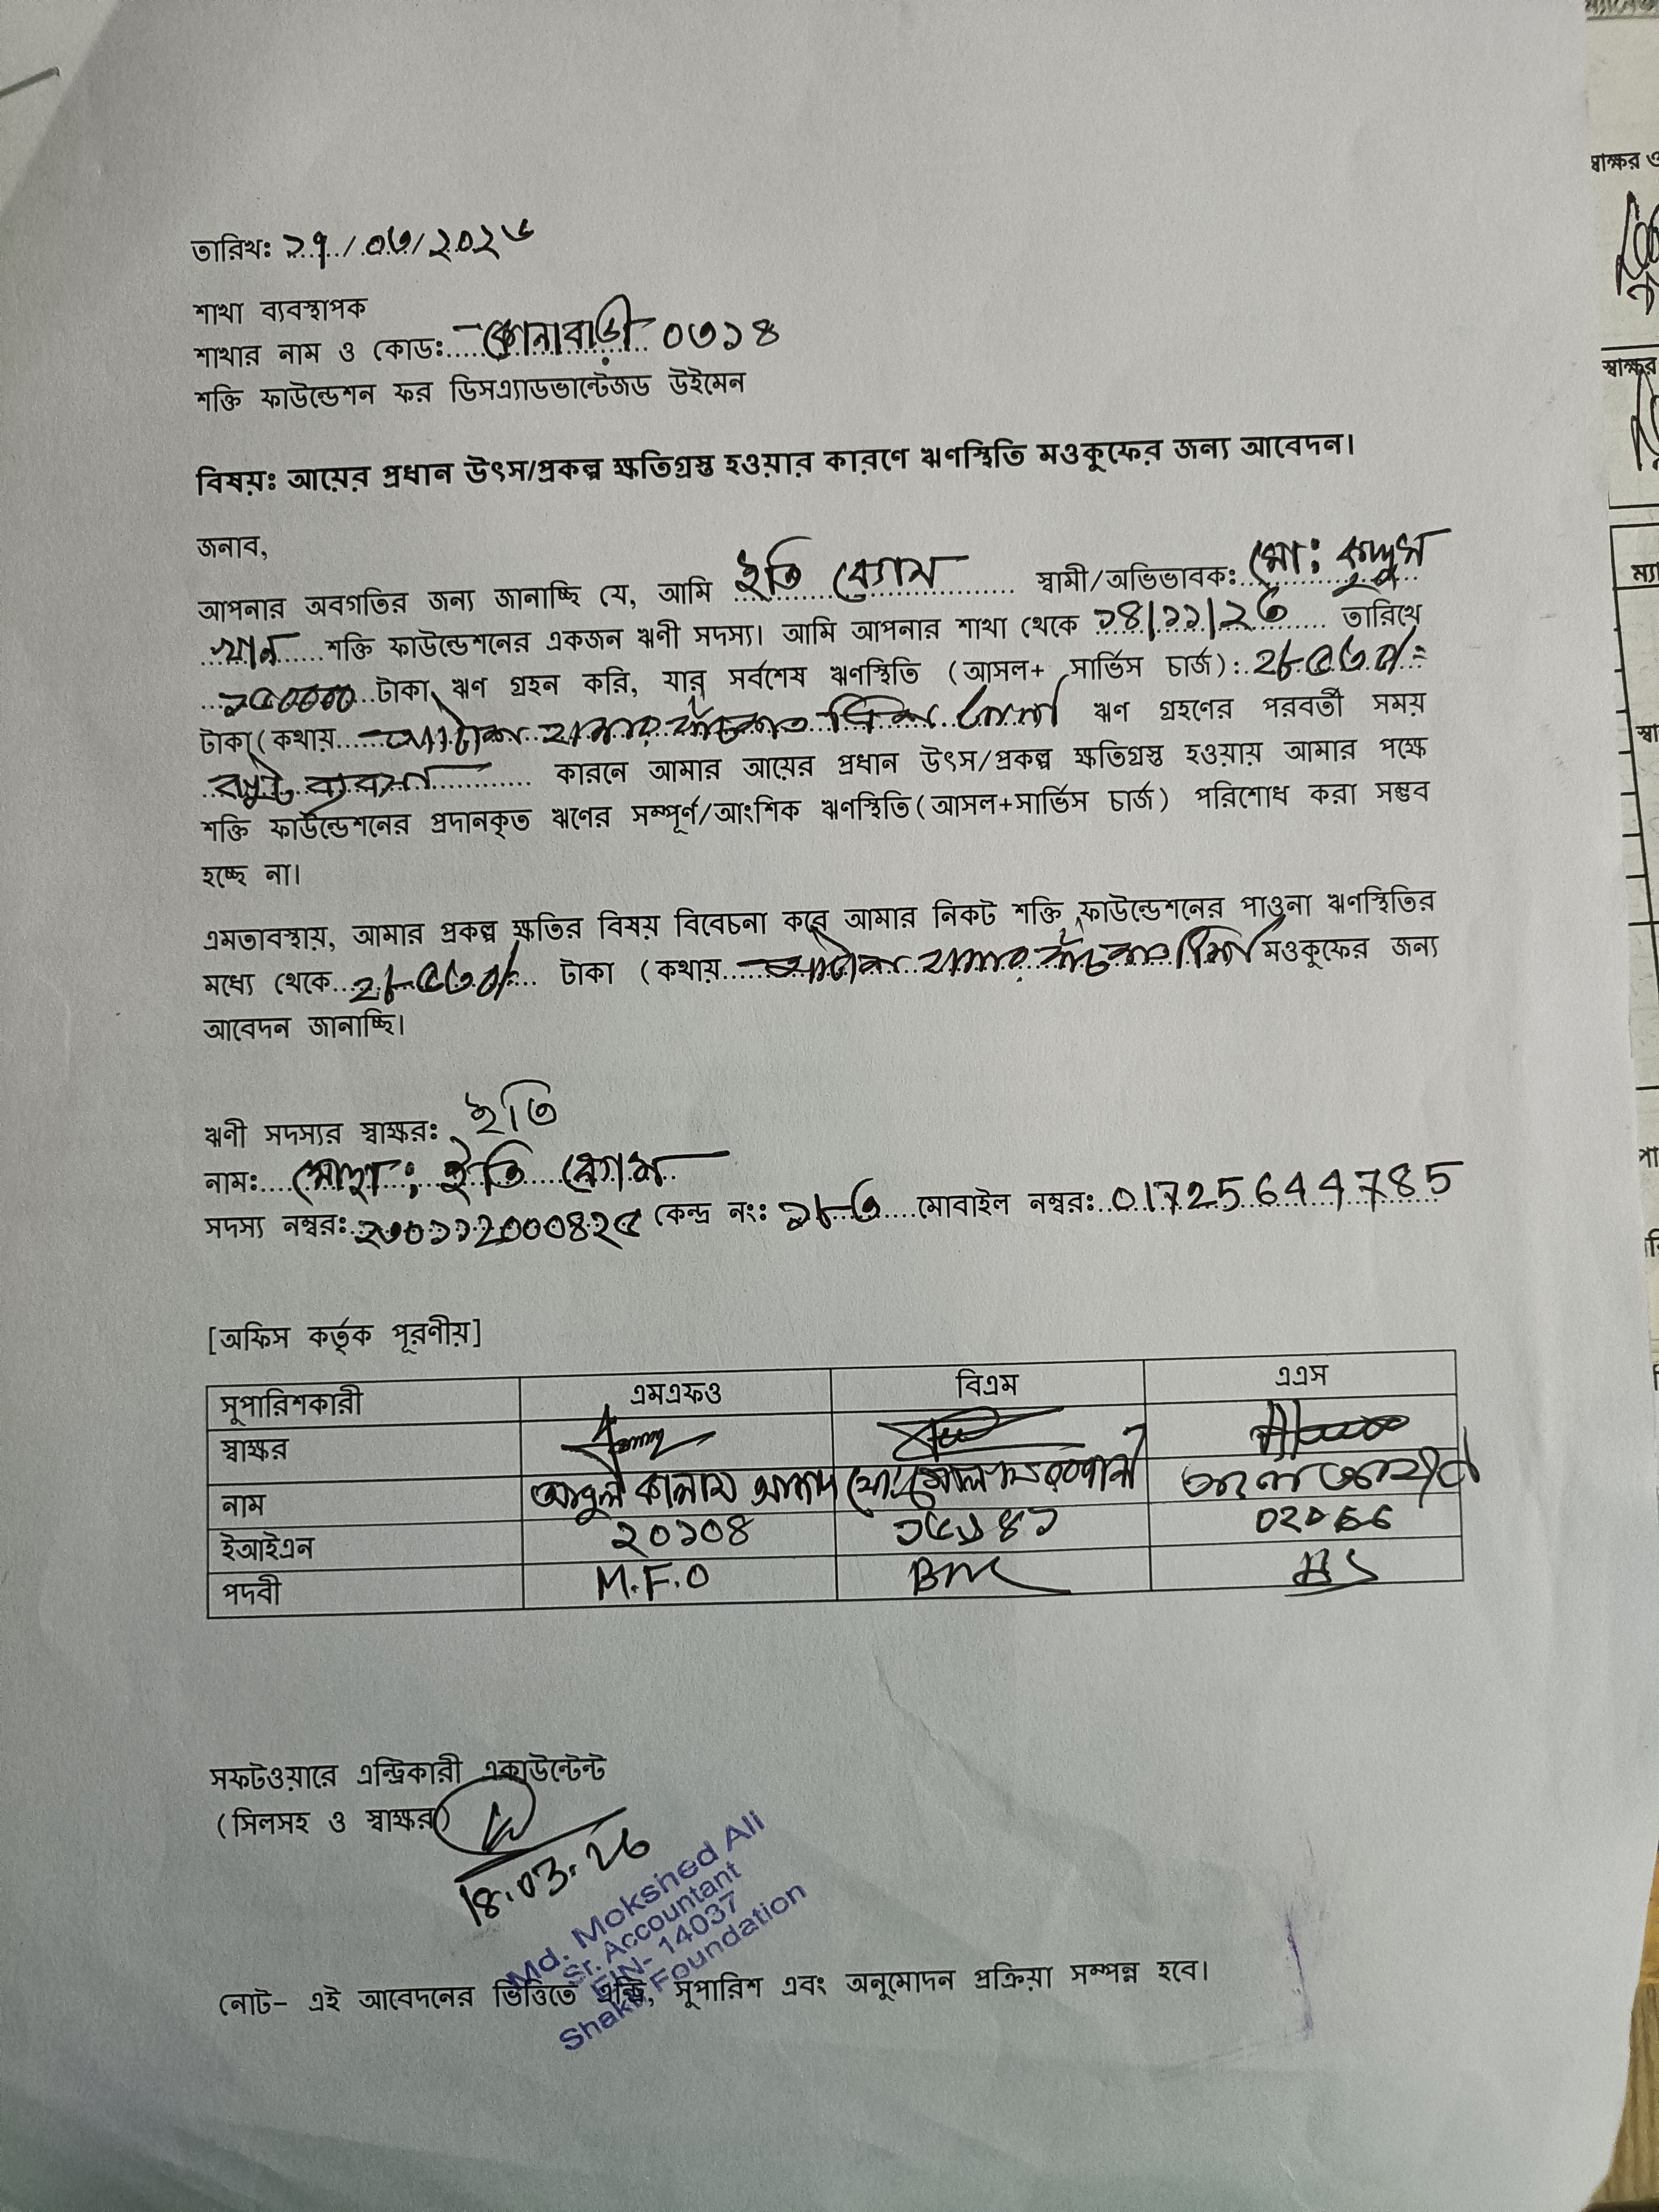 তারিখঃ ১৭/০৩/২০২৬
শাখা ব্যবস্থাপক
শাখার নাম ও কোডঃ কোনাবাড়ী ০৩১৪
শক্তি ফাউন্ডেশন ফর ডিসএ্যাডভান্টেজড উইমেন
বিষয়ঃ আয়ের প্রধান উৎস/প্রকল্প ক্ষতিগ্রস্ত হওয়ার কারণে ঋণস্থিতি মওকুফের জন্য আবেদন।
জনাব,
আপনার অবগতির জন্য জানাচ্ছি যে, আমি ইতি বেগম স্বামী/অভিভাবকঃ মোঃ কুদ্দুস
খান শক্তি ফাউন্ডেশনের একজন ঋণী সদস্য। আমি আপনার শাখা থেকে ১৪/১১/২৩ তারিখে
১৫০০০০ টাকা ঋণ গ্রহন করি, যার সর্বশেষ ঋণস্থিতি (আসল+ সার্ভিস চার্জ): ২৮৫৩০/=
টাকা(কথায় আটাশ হাজার পাঁচশত ত্রিশ ঋণ গ্রহণের পরবর্তী সময়
ব্যবসা কারনে আমার আয়ের প্রধান উৎস/প্রকল্প ক্ষতিগ্রস্ত হওয়ায় আমার পক্ষে
শক্তি ফাউন্ডেশনের প্রদানকৃত ঋণের সম্পূর্ণ/আংশিক ঋণস্থিতি(আসল+সার্ভিস চার্জ) পরিশোধ করা সম্ভব
হচ্ছে না।
এমতাবস্থায়, আমার প্রকল্প ক্ষতির বিষয় বিবেচনা করে আমার নিকট শক্তি ফাউন্ডেশনের পাওনা ঋণস্থিতির
মধ্যে থেকে ২৮৫৩০/= টাকা (কথায় আটাশ হাজার পাঁচশত ত্রিশ মওকুফের জন্য
আবেদন জানাচ্ছি।
ঋণী সদস্যর স্বাক্ষরঃ ইতি
নামঃ মোছাঃ ইতি বেগম
সদস্য নম্বরঃ ২৩০১১২০০০৪২৫ কেন্দ্র নংঃ ১৮৩ মোবাইল নম্বরঃ 01725644785
[অফিস কর্তৃক পূরণীয়]
সুপারিশকারী এমএফও বিএম এএস
স্বাক্ষর
নাম আবুল কালাম আজাদ মোঃ
ইআইএন ২০১০৪ ১৫১৪১ 02066
পদবী M.F.O BM AS
সফটওয়ারে এন্ট্রিকারী একাউন্টেন্ট
(সিলসহ ও স্বাক্ষর)
18.03.26
Md. Mokshed Ali
Sr. Accountant
EIN- 14037
Shakti Foundation
নোট- এই আবেদনের ভিত্তিতে এন্ট্রি, সুপারিশ এবং অনুমোদন প্রক্রিয়া সম্পন্ন হবে।